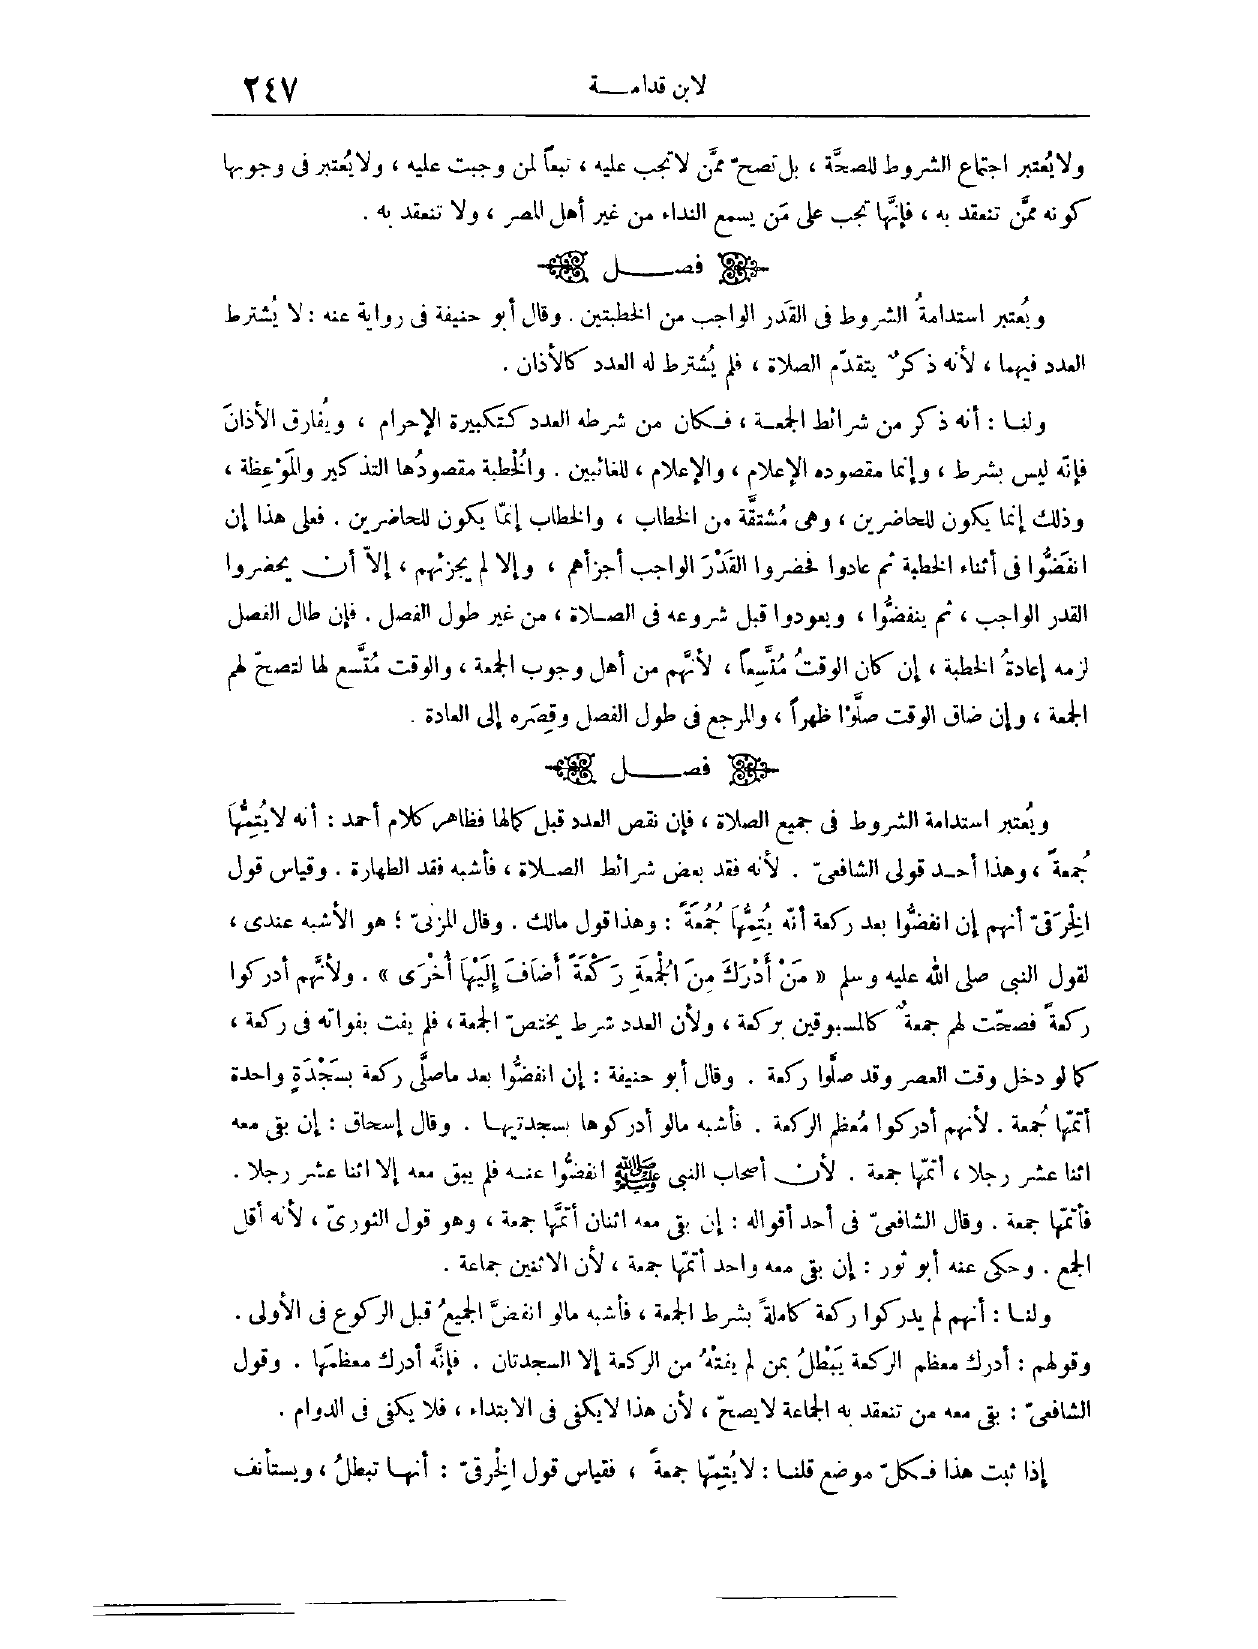 لابن قدامة
٢٤٧
ولا يُعتبر اجتماع الشروط للصحَّة ، بل تصحّ ممَّن لا تجب عليه ، تبعاً لمن وجبت عليه ، ولا يُعتبر فى وجوبها
كونه ممَّن تنعقد به ، فإنَّها تجب على مَن يسمع النداء من غير أهل المصر ، ولا تنعقد به .
فصل
ويُعتبر استدامةُ الشروط فى القَدر الواجب من الخطبتين . وقال أبو حنيفة فى رواية عنه : لا يُشترط
العدد فيهما ، لأنه ذكرٌ يتقدّم الصلاة ، فلم يُشترط له العدد كالأذان .
ولنا : أنه ذكر من شرائط الجمعة ، فكان من شرطه العدد كتكبيرة الإحرام ، ويُفارق الأذانَ
فإنّه ليس بشرط ، وإنما مقصوده الإعلام ، والإعلام ، للغائبين . والُخطبة مقصودُها التذكير والَموْعِظة ،
وذلك إنما يكون للحاضرين ، وهى مُشتقَّة من الخطاب ، والخطاب إنمّا يكون للحاضرين . فعلى هذا إن
انفَضُّوا فى أثناء الخطبة ثم عادوا فحضروا القَدْرَ الواجب أجزأهم ، وإلا لم يجزئهم ، إلاّ أن يحضروا
القدر الواجب ، ثم ينفضُّوا ، ويعودوا قبل شروعه فى الصلاة ، من غير طول الفصل . فإن طال الفصل
لزمه إعادةُ الخطبة ، إن كان الوقتُ مُتَّسِعاً ، لأنَّهم من أهل وجوب الجمعة ، والوقت مُتَّسع لها لتصحّ لهم
الجمعة ، وإن ضاق الوقت صلَّوْا ظهراً ، والمرجع فى طول الفصل وقِصَره إلى العادة .
فصل
ويُعتبر استدامة الشروط فى جميع الصلاة ، فإن نقص العدد قبل كمالها فظاهر كلام أحمد : أنه لا يُتِمُّهَا
جُمعةً ، وهذا أحد قولى الشافعىّ . لأنه فقد بعض شرائط الصلاة ، فأشبه فقد الطهارة . وقياس قول
الِخرَقىّ أنهم إن انفضُّوا بعد ركعة أنّه يُتِمُّهَا جُمُعَةً : وهذا قول مالك . وقال المزنىّ ؛ هو الأشبه عندى ،
لقول النبى صلى الله عليه وسلم « مَنْ أَدْرَكَ مِنَ الْجُمعَةِ رَكْعَةً أَضَافَ إِلَيْهَا أُخْرَى » . ولأنَّهم أدركوا
ركعةً فصحّت لهم جمعةٌ كالمسبوقين بركعة ، ولأن العدد شرط يختصّ الجمعة ، فلم يفت بفواته فى ركعة ،
كما لو دخل وقت العصر وقد صلَّوا ركعة . وقال أبو حنيفة : إن انفضُّوا بعد ما صلَّى ركعة بسَجْدَةٍ واحدة
أتمّها جُمعة . لأنهم أدركوا مُعظم الركعة . فأشبه مالو أدركوها بسجدتيها . وقال إسحاق : إن بقى معه
اثنا عشر رجلا ، أتمّها جمعة . لأن أصحاب النبى ﷺ انفضُّوا عنه فلم يبق معه إلا اثنا عشر رجلا .
فأتمّها جمعة . وقال الشافعىّ فى أحد أقواله : إن بقى معه اثنان أتمَّها جمعة ، وهو قول الثورىّ ، لأنه أقل
الجمع . وحكى عنه أبو ثور : إن بقى معه واحد أتمّها جمعة ، لأن الاثنين جماعة .
ولنا : أنهم لم يدركوا ركعة كاملةً بشرط الجمعة ، فأشبه مالو انفضَّ الجميعُ قبل الركوع فى الأولى .
وقولهم : أدرك معظم الركعة يَبْطلُ بمن لم يفتْهُ من الركعة إلا السجدتان . فإنَّه أدرك معظمَها . وقول
الشافعىّ : بقى معه من تنعقد به الجماعة لا يصحّ ، لأن هذا لا يكفى فى الابتداء ، فلا يكفى فى الدوام .
إذا ثبت هذا فكلّ موضع قلنا : لا يُتِمّها جمعةً ، فقياس قول الِخرقىّ : أنها تبطلُ ، ويستأنف